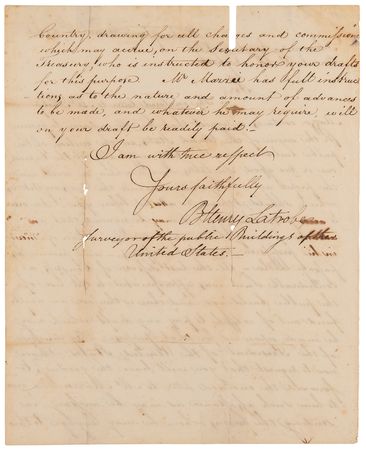 Country, drawing for all charges and commission
which may accrue, on the Secretary of the
Treasury, who is instructed to honor your drafts
for this purpose. Mr. has full instruc
tions as to the nature and amount of advances
to be made, and whatever he may require, will
on your draft be readily paid.—
I am with true respect
Yours faithfully
BHenry Latrobe
Surveyor of the public Buildings of the
United States.—